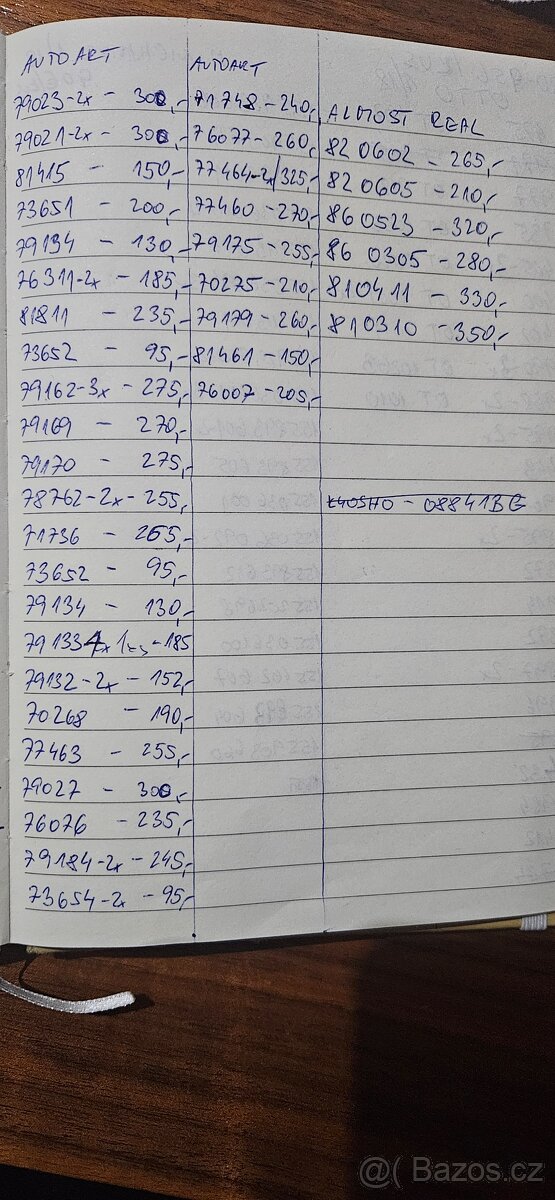 AUTOART
79023-2x - 300,-
79021-2x - 300,-
81415 - 150,-
73651 - 200,-
79134 - 130,-
76311-2x - 185,-
81811 - 235,-
73652 - 95,-
79162-3x - 275,-
79169 - 270,-
79170 - 275,-
78762-2x - 255,-
71736 - 265,-
73652 - 95,-
79134 - 130,-
79133 - 185
79132-2x - 152,-
70268 - 190,-
77463 - 255,-
79027 - 300,-
76076 - 235,-
79184-2x - 245,-
73654-2x - 95,-
AUTOART
71748 - 240,-
76077 - 260,-
77464-2x/325,-
77460 - 270,-
79175 - 255,-
70275 - 210,-
79179 - 260,-
81461 - 150,-
76007 - 205,-
ALMOST REAL
820602 - 265,-
820605 - 210,-
860523 - 320,-
860305 - 280,-
810411 - 330,-
810310 - 350,-
KYOSHO - 08841BG
@( Bazos.cz